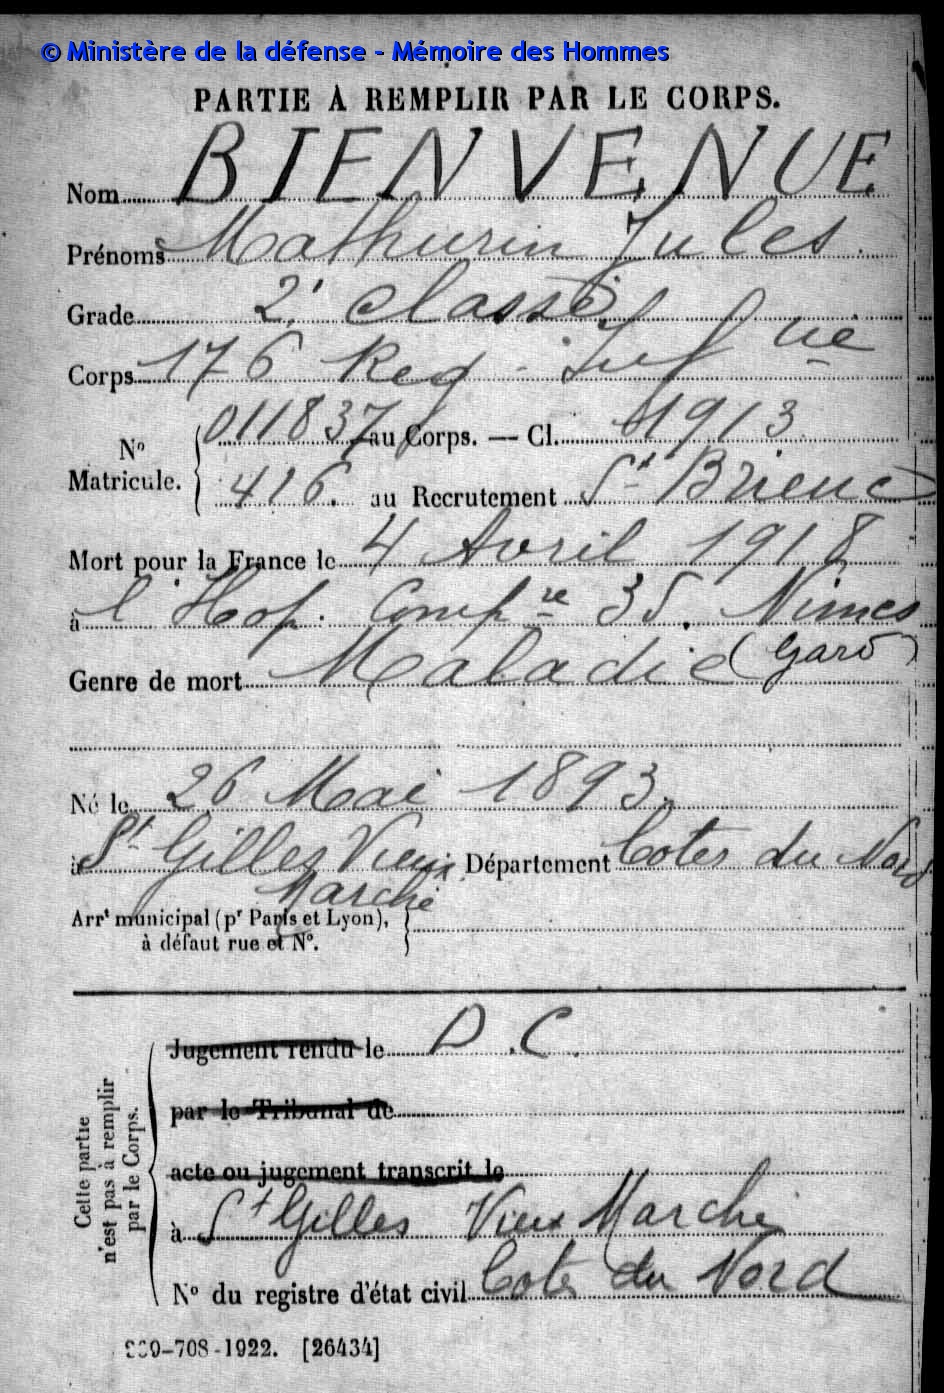 © Ministère de la défense - Mémoire des Hommes
PARTIE À REMPLIR PAR LE CORPS.
Nom BIENVENUE
Prénoms Mathurin Jules
Grade 2e classe
Corps 176 Reg. Inf rie
No Matricule. { 011837 au Corps. — Cl. 1913
416. au Recrutement St Brieuc
Mort pour la France le 4 Avril 1918
à l'Hop. Comp re 35. Nimes
(Gard)
Genre de mort Maladie
Né le 26 Mai 1893.
à St Gilles Vieux Département Cotes du Nord
Marché
Arrt municipal (pr Paris et Lyon),
à défaut rue et No.
Cette partie
n'est pas à remplir
par le Corps.
Jugement rendu le D.C.
par le Tribunal de
acte ou jugement transcrit le
à St Gilles Vieux Marché
No du registre d'état civil Cotes du Nord
-708-1922. [26434]